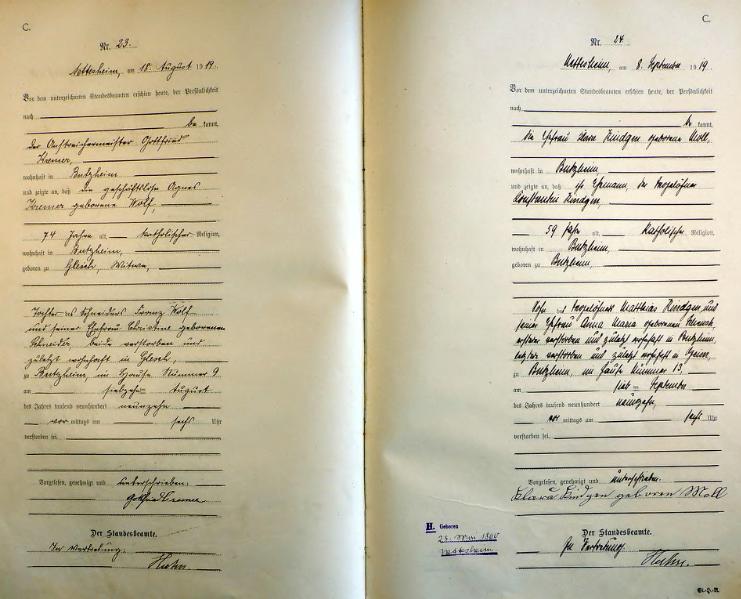 C.
Nr. 23.
Nettesheim, am 18. August 1919.
Vor dem unterzeichneten Standesbeamten erschien heute, der Persönlichkeit
nach
be kannt,
der Anstreichermeister Gottfried
Kremer,
wohnhaft in Butzheim
und zeigte an, daß die geschäftslose Agnes
Kremer geborene Wolf,
74 Jahre alt, katholischer Religion,
wohnhaft in Butzheim,
geboren zu Glesch, Witwe,
Tochter des Schneiders Franz Wolf
und seiner Ehefrau Christine geborenen
Schneider, beide verstorben und
zuletzt wohnhaft in Glesch,
zu Butzheim, im Hause Nummer 9
am siebzehn August
des Jahres tausend neunhundert neunzehn
vor mittags um sechs Uhr
verstorben sei.
Vorgelesen, genehmigt und unterschrieben.
Gottfried Kremer
Der Standesbeamte.
In Vertretung.
C.
Nr. 24
Nettesheim, am 8. September 1919.
Vor dem unterzeichneten Standesbeamten erschien heute, der Persönlichkeit
nach
be kannt,
die Ehefrau Klara Kindgen geborene Moll,
wohnhaft in Butzheim,
und zeigte an, daß ihr Ehemann, der Tagelöhner
Constantin Kindgen,
59 Jahre alt, Katholischer Religion,
wohnhaft in Butzheim,
geboren zu Butzheim,
Sohn des Tagelöhners Matthias Kindgen und
seiner Ehefrau Anna Maria geborenen
ersterer verstorben und zuletzt wohnhaft in Butzheim,
letztere verstorben und zuletzt wohnhaft in
zu Butzheim, im Hause Nummer 13,
am September
des Jahres tausend neunhundert neunzehn,
vor mittags um sechs Uhr
verstorben sei.
Vorgelesen, genehmigt und unterschrieben.
Klara Kindgen geboren Moll
H. Geboren
23. Mai 1860
Nettesheim
Der Standesbeamte.
In Vertretung.